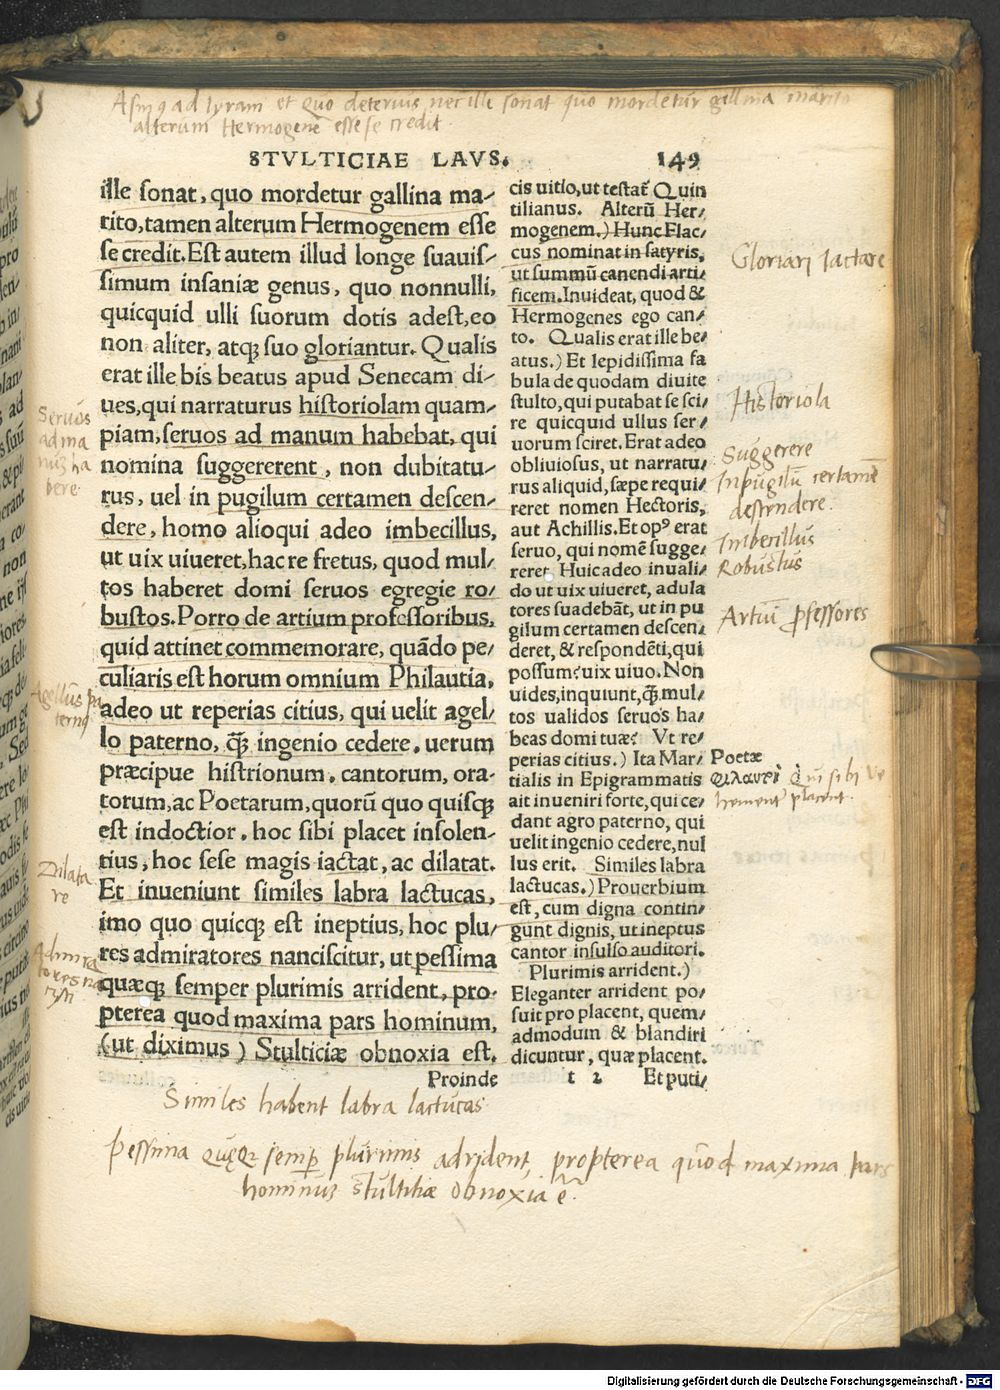 Asinꝰ ad lyram et quo deterius nec ille sonat quo mordetur gallina marito
alterum Hermogenē esse se credit
STVLTICIAE LAVS. 149
ille sonat, quo mordetur gallina ma-
rito, tamen alterum Hermogenem esse
se credit. Est autem illud longe suauis-
simum insaniæ genus, quo nonnulli,
quicquid ulli suorum dotis adest, eo
non aliter, atqꝫ suo gloriantur. Qualis
erat ille bis beatus apud Senecam di-
ues, qui narraturus historiolam quam-
piam, seruos ad manum habebat, qui
nomina suggererent, non dubitatu-
rus, uel in pugilum certamen descen-
dere, homo alioqui adeo imbecillus,
ut uix uiueret, hac re fretus, quod mul-
tos haberet domi seruos egregie ro-
bustos. Porro de artium professoribus,
quid attinet commemorare, quãdo pe-
culiaris est horum omnium Philautia,
adeo ut reperias citius, qui uelit agel-
lo paterno, qꝫ̃ ingenio cedere, uerum
præcipue histrionum, cantorum, ora-
torum, ac Poetarum, quorũ quo quisqꝫ
est indoctior, hoc sibi placet insolen-
tius, hoc sese magis iactat, ac dilatat.
Et inueniunt similes labra lactucas,
imo quo quicqꝫ est ineptius, hoc plu-
res admiratores nanciscitur, ut pessima
quæqꝫ semper plurimis arrident, pro-
pterea quod maxima pars hominum,
(ut diximus) Stulticiæ obnoxia est.
Proinde
cis uitio, ut testat᷑ Quin
tilianus. Alterũ Her-
mogenem.) Hunc Flac-
cus nominat in satyris,
ut summũ canendi arti-
ficem. Inuideat, quod &
Hermogenes ego can-
to. Qualis erat ille be-
atus.) Et lepidissima fa
bula de quodam diuite
stulto, qui putabat se sci-
re quicquid ullus ser-
uorum sciret. Erat adeo
obliuiosus, ut narratu-
rus aliquid, sæpe requi-
reret nomen Hectoris,
aut Achillis. Et opꝰ erat
seruo, qui nomẽ sugge-
reret. Huic adeo inuali-
do ut uix uiueret, adula
tores suadebãt, ut in pu
gilum certamen descen-
deret, & respondẽti, qui
possum? uix uiuo. Non
uides, inquiunt, qꝫ̃ mul-
tos ualidos seruos ha-
beas domi tuæ? Vt re-
perias citius.) Ita Mar-
tialis in Epigrammatis
ait inueniri forte, qui ce-
dant agro paterno, qui
uelit ingenio cedere, nul
lus erit. Similes labra
lactucas.) Prouerbium
est, cum digna contin-
gunt dignis, ut ineptus
cantor insulso auditori.
Plurimis arrident.)
Eleganter arrident po-
suit pro placent, quem-
admodum & blandiri
dicuntur, quæ placent.
t 2 Et puti-
Seruos
ad ma
nus ha
bere
Agellus pa
ternꝰ
Dilata
re
Admira
tores na
cisci
Gloriari Iactare
Historiola
Suggerere
In pugilū certamē
descendere.
Imbecillus
Robustus
Artiū ꝓfessores
Poetæ
φιλαυτὶ Qui sibi ve
hement placent.
Similes habent labra lactucas
Pessima quęqꝫ semꝑ plurimis adrident, propterea quod maxima pars
hominus stultitiæ obnoxia ē.
Digitalisierung gefördert durch die Deutsche Forschungsgemeinschaft - DFG